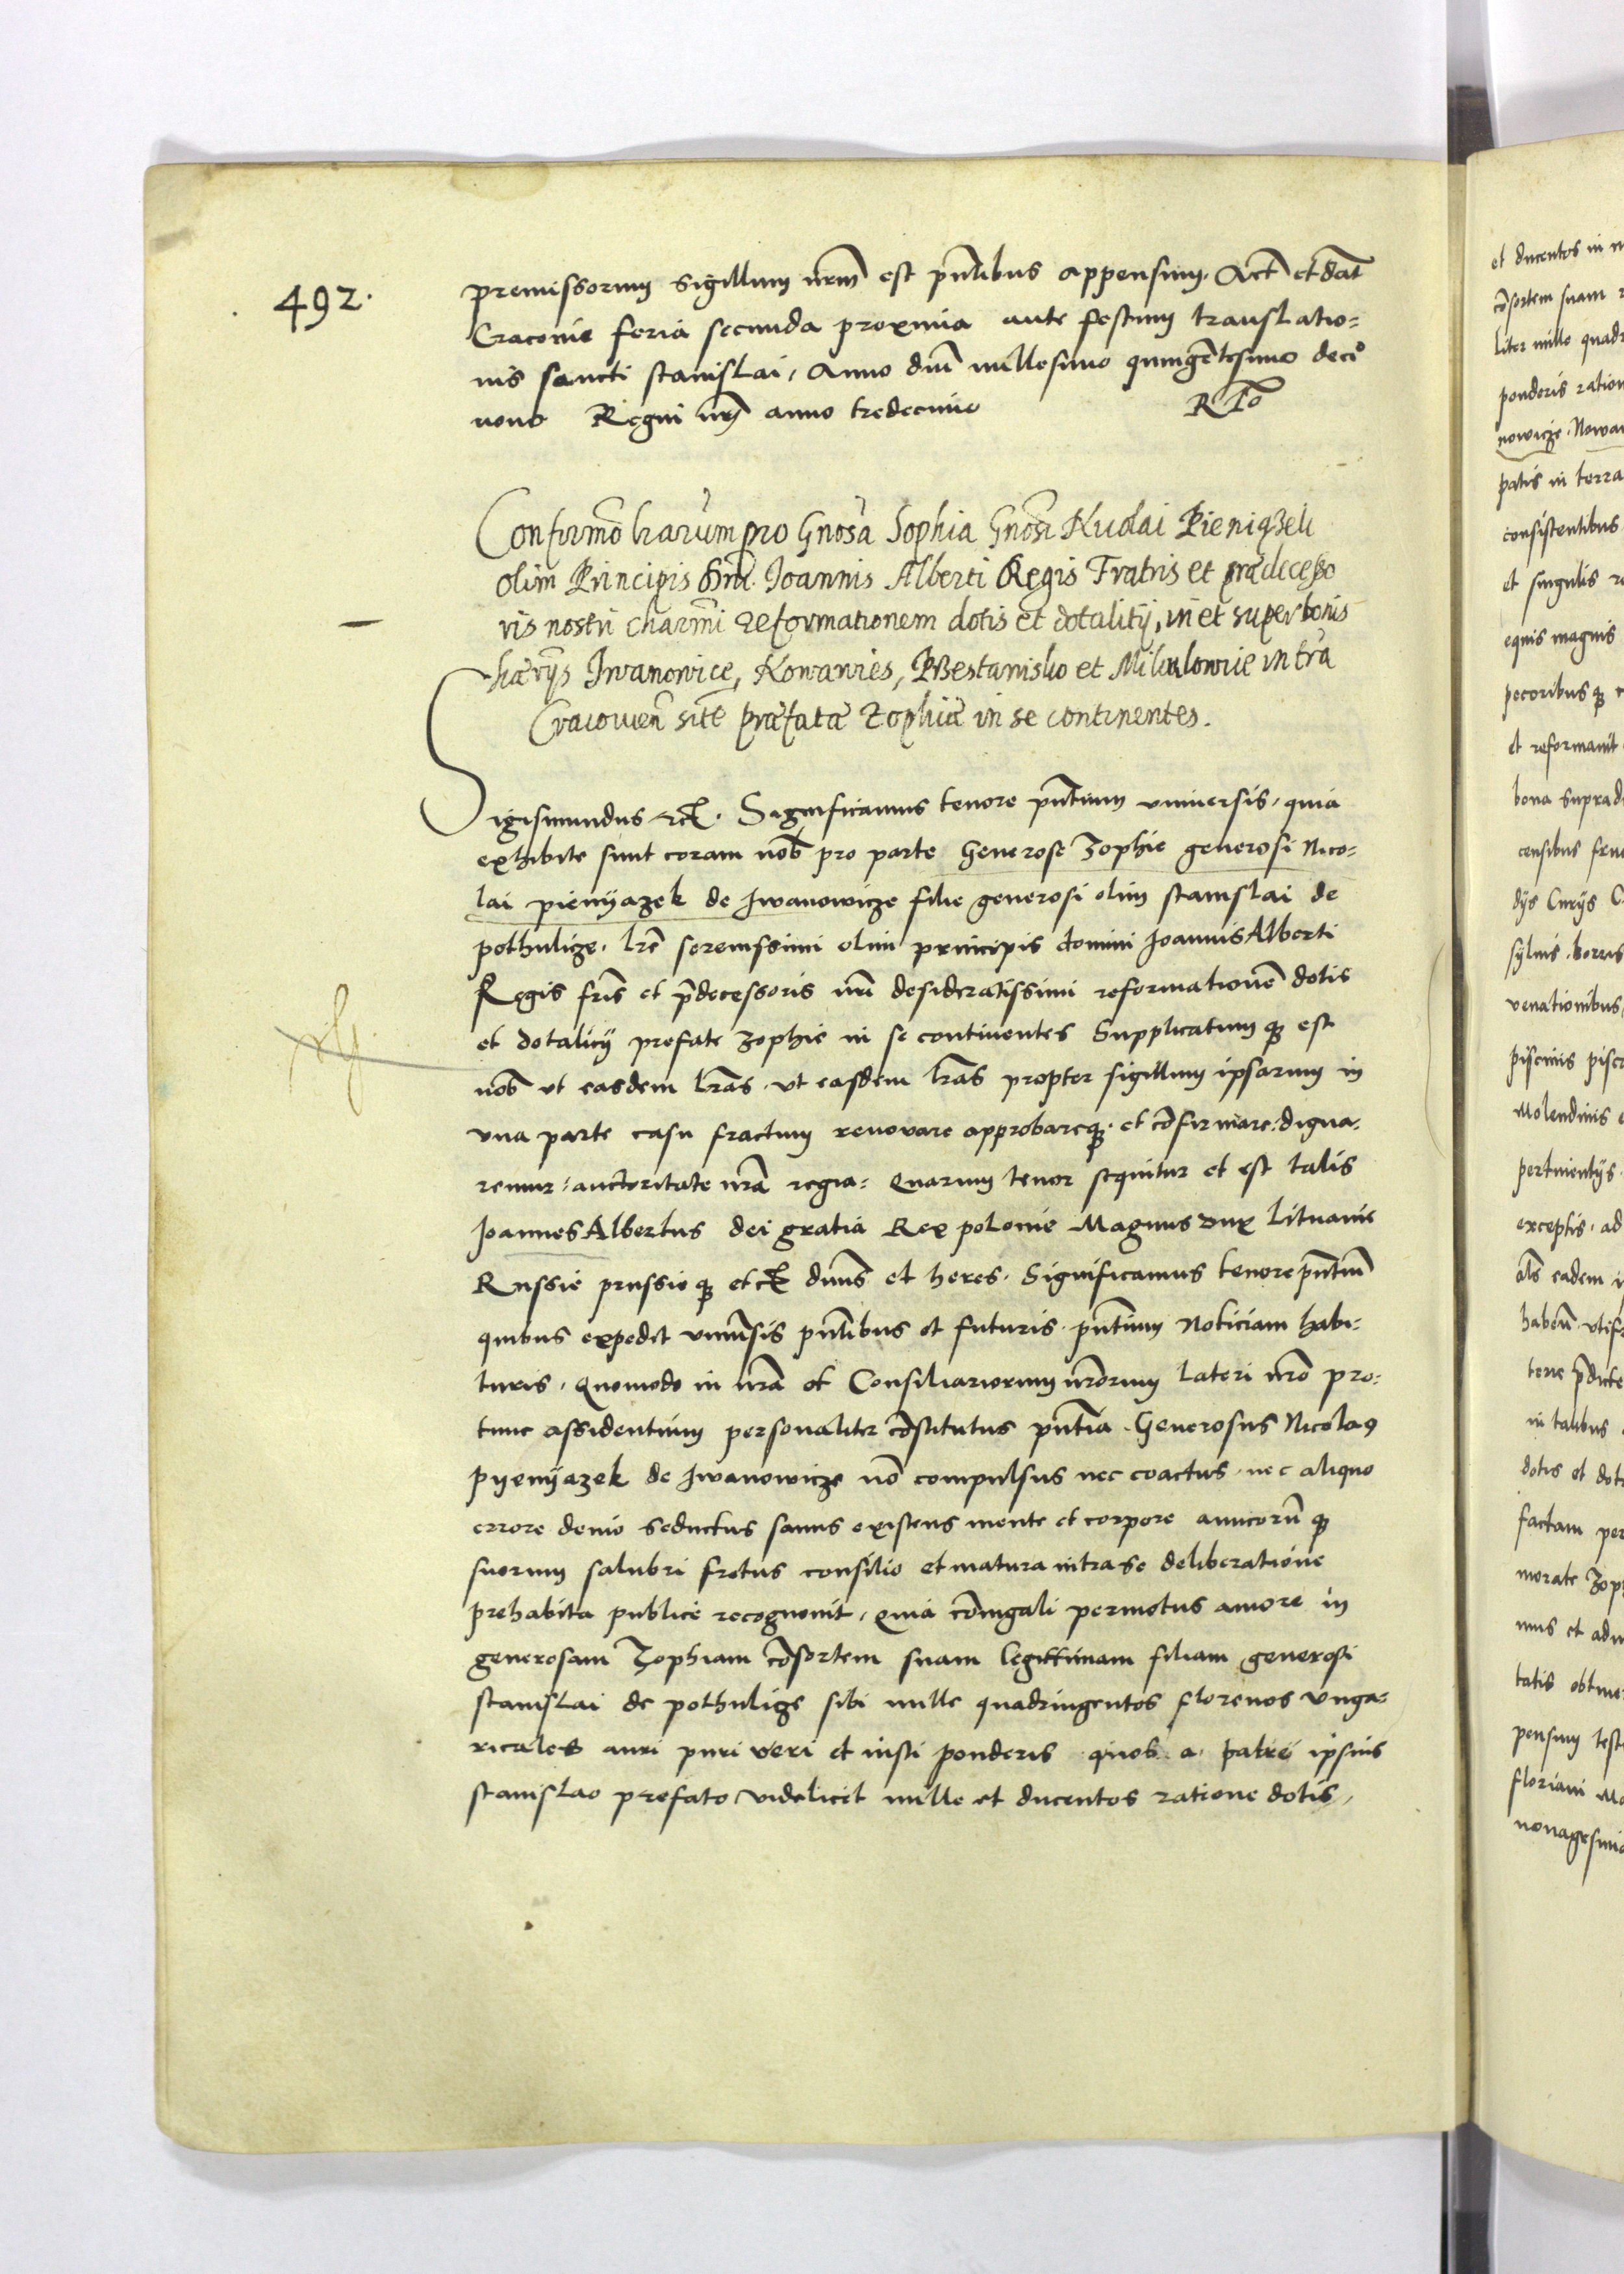 492.
premissorum sigillum nrm̃ est pñtibus appensum. Act̃ et dat̃
Cracovie feria secunda proxima ante festum translatio=
nis sancti stanislai, Anno dnĩ millesimo quingẽtesimo deciº
nono Regni nrĩ anno tredecimo R Tõ
Confirmõ lrarum pro Gnosa Sophia Gnosi Nicolai Pieniązek
olim Principis Dni. Joannis Alberti Regis Fratris et prædecesso
ris nostri charmĩ reformationem dotis et dotalitij, in et super bonis
hærijs Iwanowice, Nowawies, Przestanisko et Milulowiie in tra
Cracovien̄ sitẽ præfatæ Zophiæ in se continentes.
Sigismundus etc̃. Significamus tenore pñtium universis, quia
exhibite sunt coram nob̃ pro parte Generose Zophie generosi Nico=
lai pienyazek de Jwanowicze filie generosi olim stanislai de
pothulize. lrẽ serenissimi olim principis domini Joannis Alberti
Regis frĩs et p̃decessoris nrĩ desideratissimi reformationẽ dotis
et dotalicij prefate zophie in se continentes Supplicatumqꝫ est
nob̃ ut easdem lrãs. ut easdem lrãs propter sigillum ipsarum in
una parte casu fractum renovare approbareqꝫ. et cõfirmare. digna=
remur: auctoritate nrã regia= Quarum tenor sequitur et est talis
Joannes Albertus dei gratia Rex polonie Magnus dux Lituanie
Russie prussieqꝫ etc̃ dnũs et heres. Significamus tenore pñtiũ
quibus expedit uniṽsis pñtibus et futuris. pñtium Noticiam habi=
turis, Quomodo in nrã et Consiliariorum nrõrum lateri nrõ pro=
tunc assidentium personaliter cõstitutus pñtia. Generosus Nicolaꝰ
pyenyazek de Jwanowicze nõ compulsus nec coactus. nec aliquo
errore devio seductus sanus existens mente et corpore amicorũqꝫ
suorum salubri fretus consilio et matura intra se deliberatione
prehabita publice recognovit, Quia cõiugali permotus amore in
generosam Zophiam cõsortem suam legittimam filiam generosi
stanislai de pothulize sibi mille quadringentos florenos unga=
ricales auri puri veri et iusti ponderis quos a patre ipsius
stanislao prefato videlicet mille et ducentos ratione dotis,
et ducentos in
cõsortem suam
liter mille quadr
ponderis ration
nowicze. Nowa
patis in terra
consistentibus
et singulis
equis magnis
pecoribusqꝫ
et reformavit
bona suprad
censibus fru
dijs Curijs
sylvis. borris
venationibus
piscinis pisc
Molendinis
pertinentijs
exceptis. ad
als̃ eadem
haben̄. utif
tene p̃dicte
in talibus
dotis et dot
factam per
morate Zop
mus et adm
tatis obtine
pensum test
floriani Ma
nonagesimo